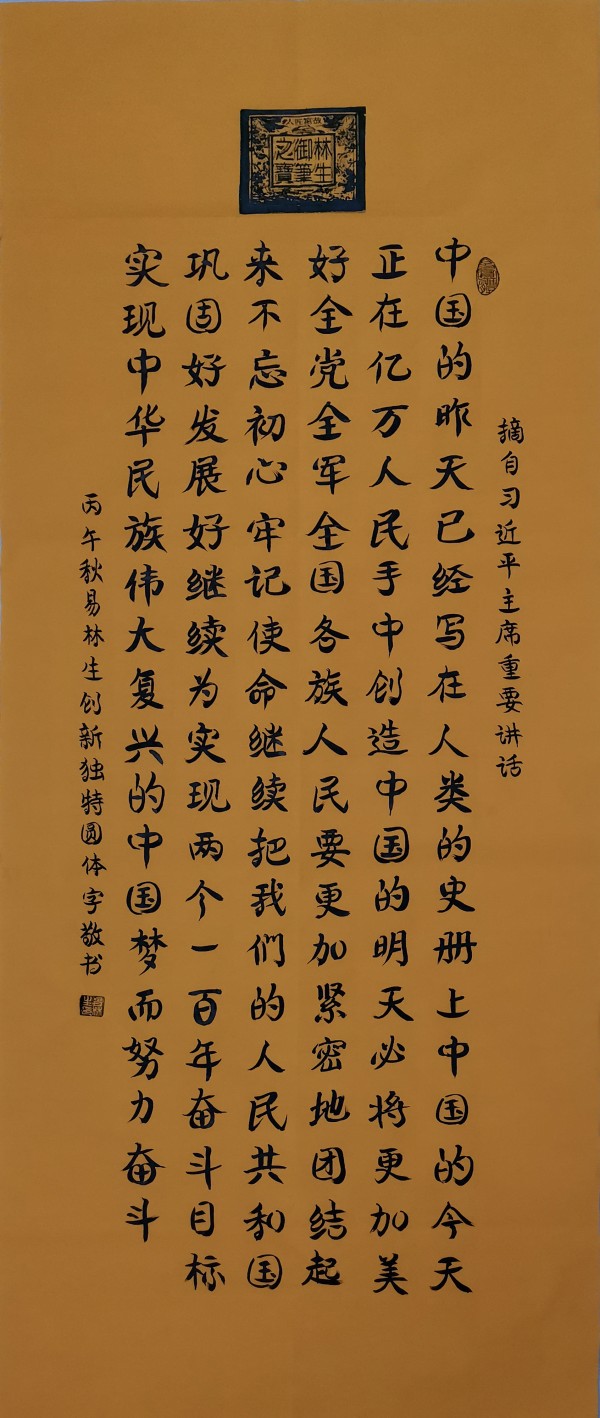 林生
御筆
之寶
摘自习近平主席重要讲话
中国的昨天已经写在人类的史册上中国的今天
正在亿万人民手中创造中国的明天必将更加美
好全党全军全国各族人民要更加紧密地团结起
来不忘初心牢记使命继续把我们的人民共和国
巩固好发展好继续为实现两个一百年奋斗目标
实现中华民族伟大复兴的中国梦而努力奋斗
丙午秋易林生创新独特圆体字敬书